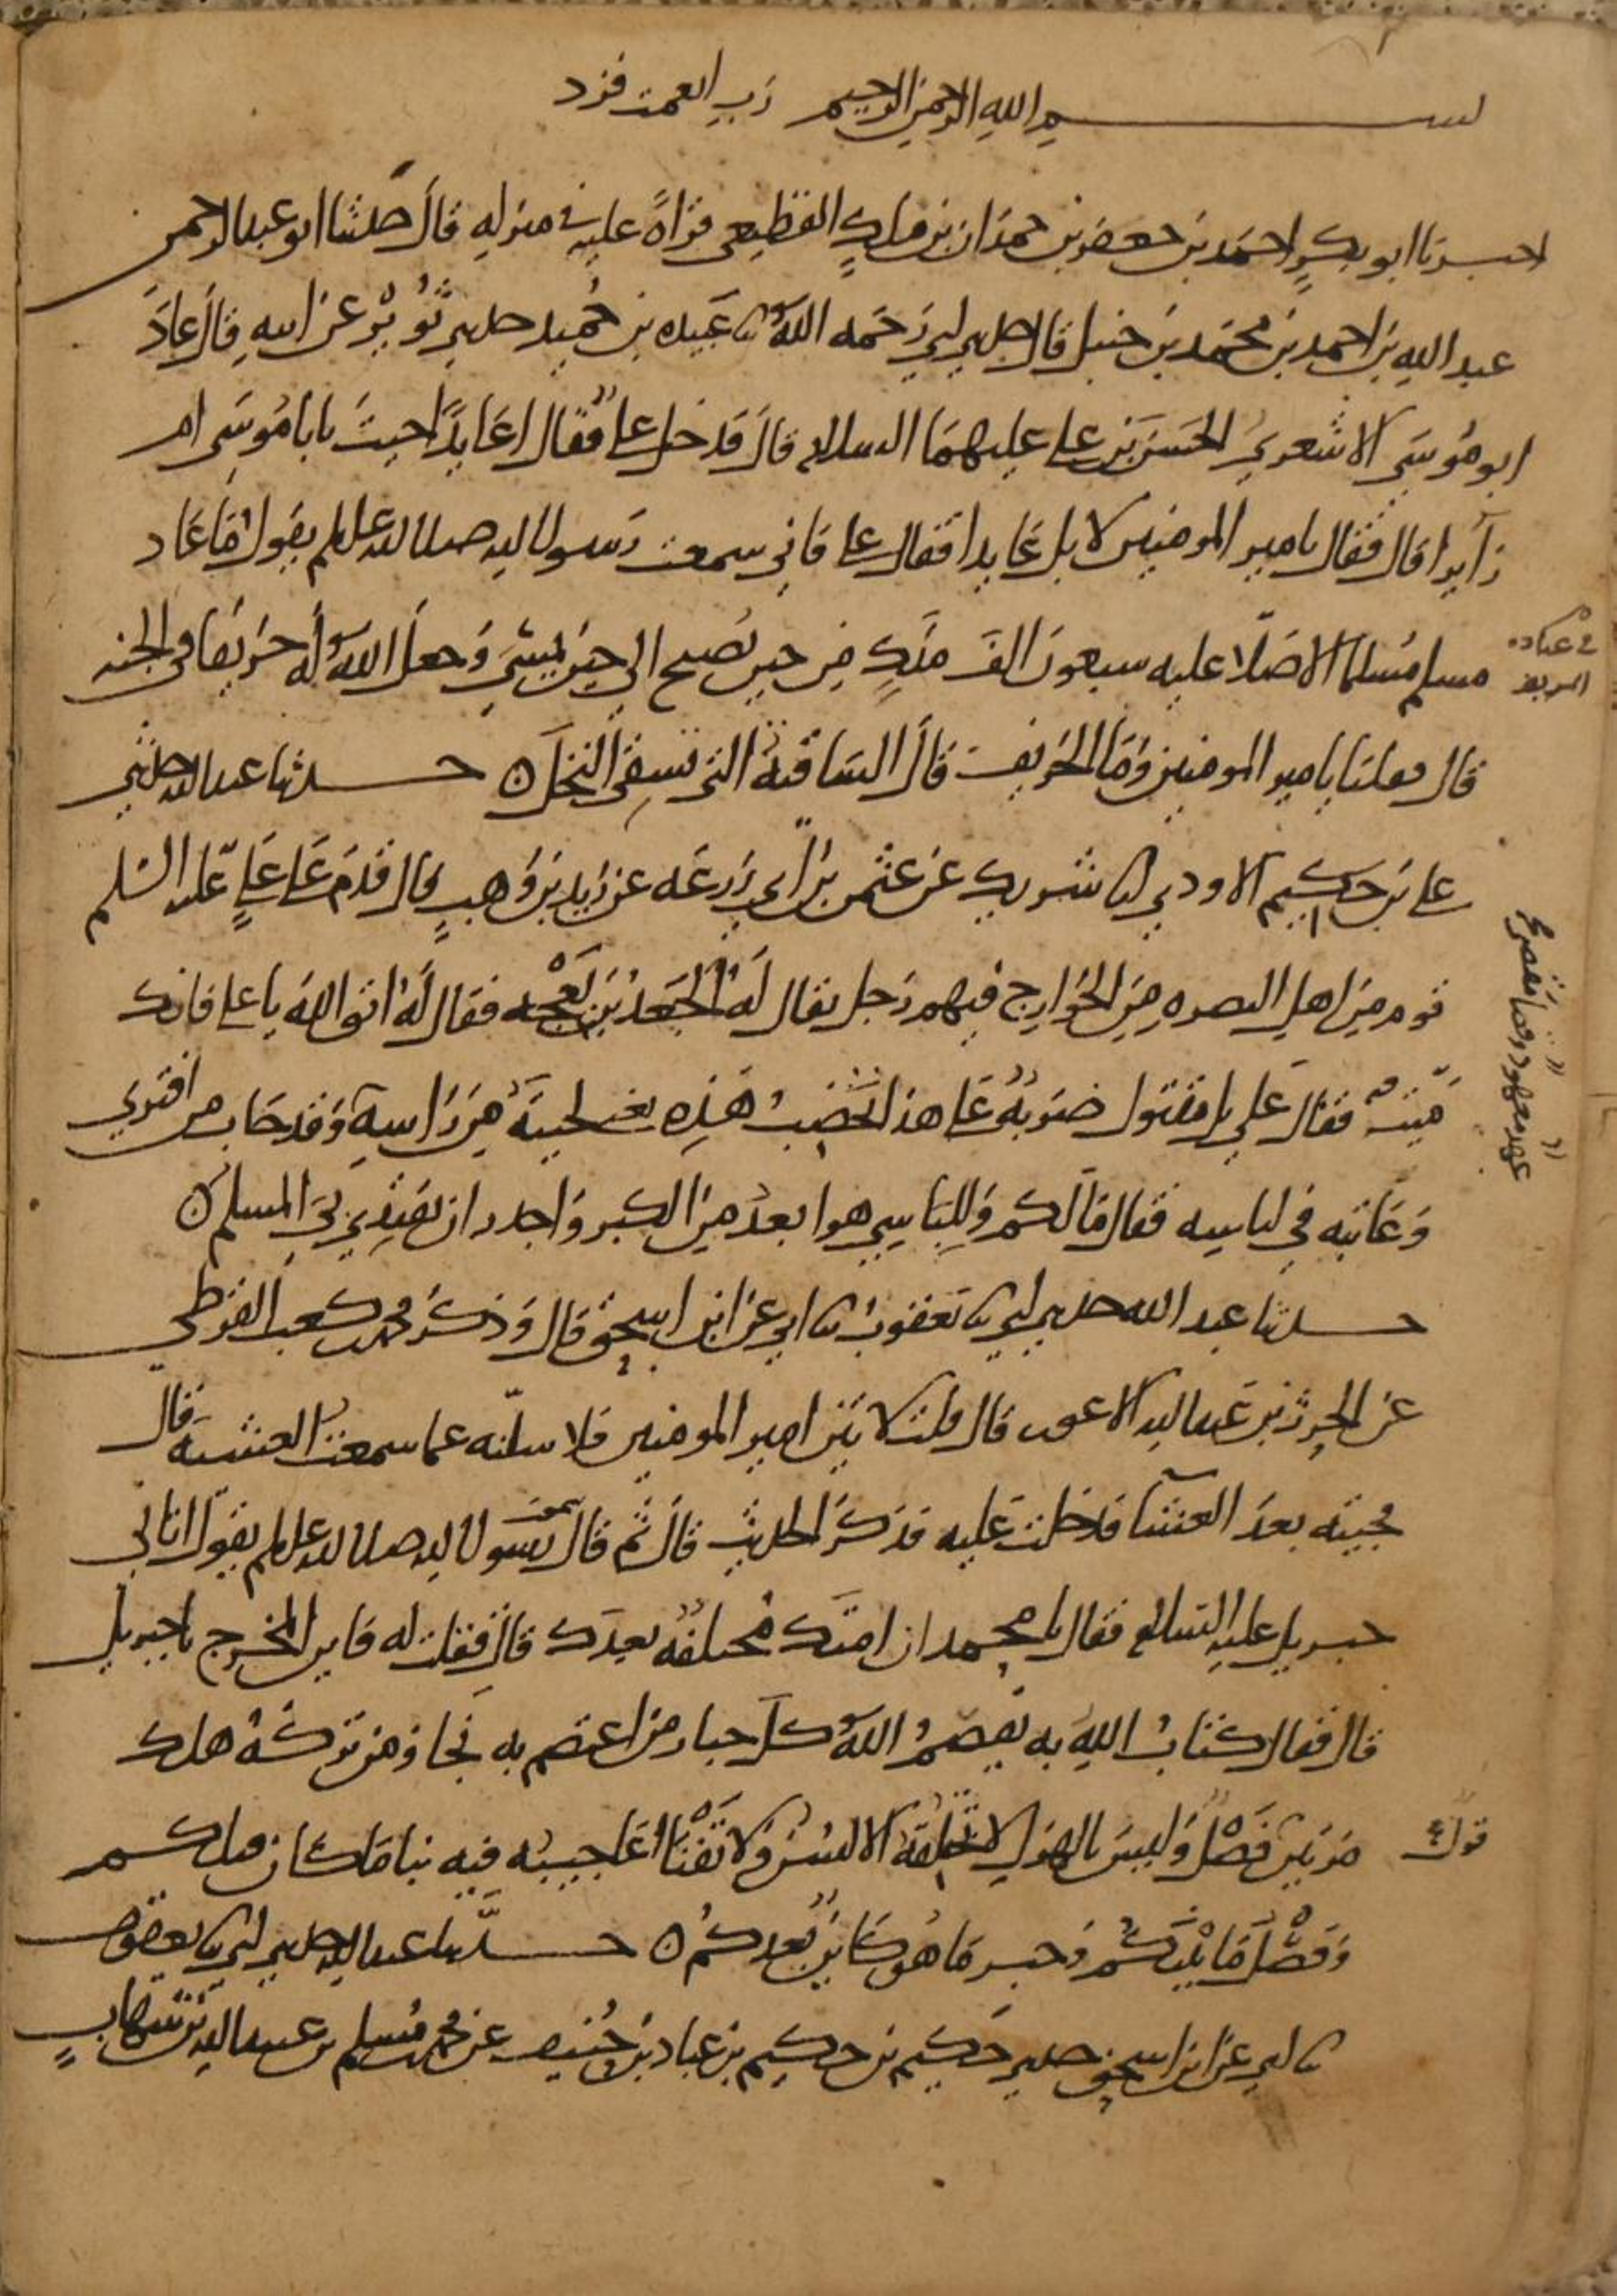 بسم الله الرحمن الرحيم رب انعمت فزد
اخبرنا ابو بكر احمد بن جعفر بن حمدان بن ملك القطيعي قراة عليه في منزله قال حدثنا ابو عبد الرحمن
عبد الله بن احمد بن محمد بن حنبل قال حدثني ابي رحمه الله نا عبيده بن حميد حدثني ثوير عن ابيه قال عاد
ابو موسى الاشعري الحسن بن علي عليهما السلام قال فدخل علي فقال اعايدا جيت يابا موسى ام
زآيرا قال فقال يامير المومنين لا بل عايدا فقال علي فاني سمعت رسول الله صلى الله عليه وسلم يقول ما عاد
مسلم مسلما الا صلا عليه سبعون الف ملك من حين يصبح الى حين يمسي وجعل الله له خريفا في الجنه
في عيادة
المريض
قال فقلنا يامير المومنين وما الخريف قال الساقية التي تسقي النخل ○ حدثنا عبد الله حدثني
علي بن حكيم الاودي انا شريك عن عثمن بن ابي زرعه عن زيد بن وهب قال قدم على علي عليه السلم
قوم من اهل البصره من الخوارج فيهم رجل يقال له الجعد بن بعجه فقال له اتق الله يا علي فانك
ميت فقال علي بل مقتول ضربة على هذا تخضب هذه يعني لحيته من راسه وقد خاب من افترى
عهد معهود وقضا مقضي
وعاتبه في لباسه فقال ما لكم وللباسي هو ابعد من الكبر واجدر ان يقتدي بي المسلم ○
حدثنا عبد الله حدثني ابي نا يعقوب نا ابي عن ابن اسحق قال وذكر محمد بن كعب القرظي
عن الحرث بن عبد الله الاعور قال قلت لاتين امير المومنين فلاسلنه عما سمعت العشية قال
فجيته بعد العشا فدخلت عليه فذكر الحديث قال ثم قال سمعت رسول الله صلى الله عليه وسلم يقول اتاني
جبريل عليه السلام فقال يا محمد ان امتك مختلفة بعدك قال فقلت له فاين المخرج يا جبريل
قال فقال كتاب الله به يقصم الله كل جبار من اعتصم به نجا ومن تركه هلك
مرتين قول فصل وليس بالهزل لا تخلقه الالسن ولا تفنا اعاجيبه فيه نبا ما كان قبلكم
وفصل ما بينكم وخبر ما هو كاين بعدكم ○ حدثنا عبد الله حدثني ابي نا يعقوب
نا ابي عن ابن اسحق حدثني حكيم بن حكيم بن عباد بن حنيف عن محمد بن مسلم بن عبيد الله بن شهاب